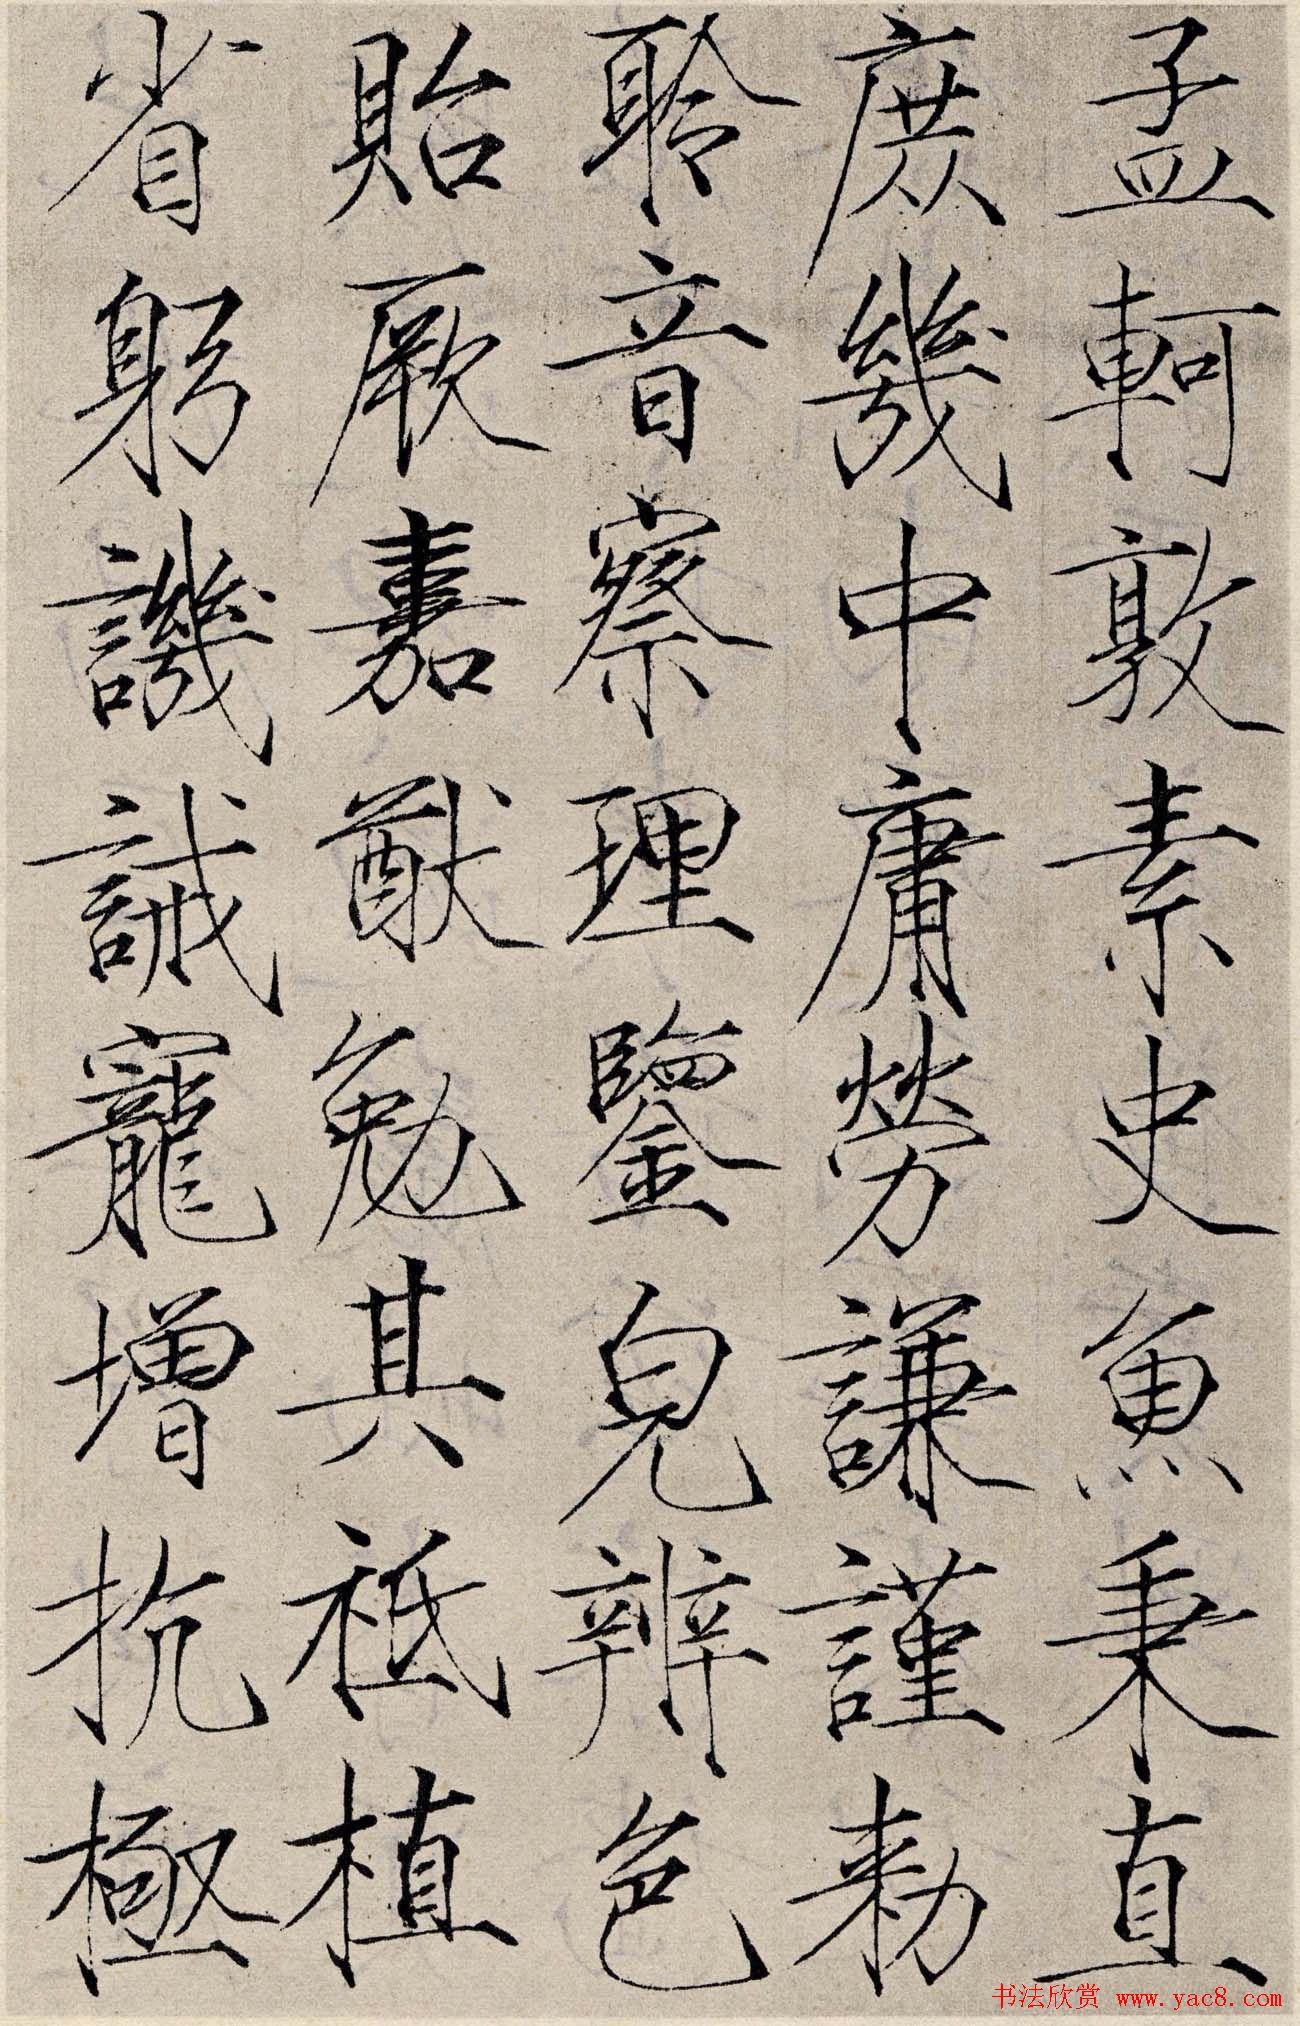 孟軻敦素史魚秉直
庶幾中庸勞謙謹勑
聆音察理鑒皃辨色
貽厥嘉猷勉其祗植
省躬譏誡寵增抗極
书法欣赏 www.yac8.com